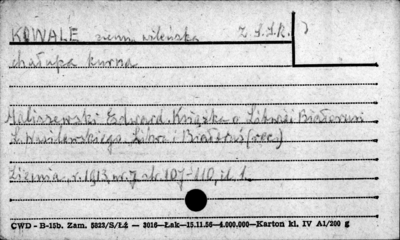 KOWALE ziemia wileńska Z S.S.R.
chałupa kurna
Maliszewski Edward. Książka o Litwie i Białorusi
L. Wasilewskiego. Litwa i Białoruś (rec.)
Ziemia, r. 1913, nr. 7 str. 107-110, il. 1.
CWD - B-15b. Zam. 5823/S/Łź — 3016—Łak—15.11.56—4.000.000—Karton kl. IV A1/200 g